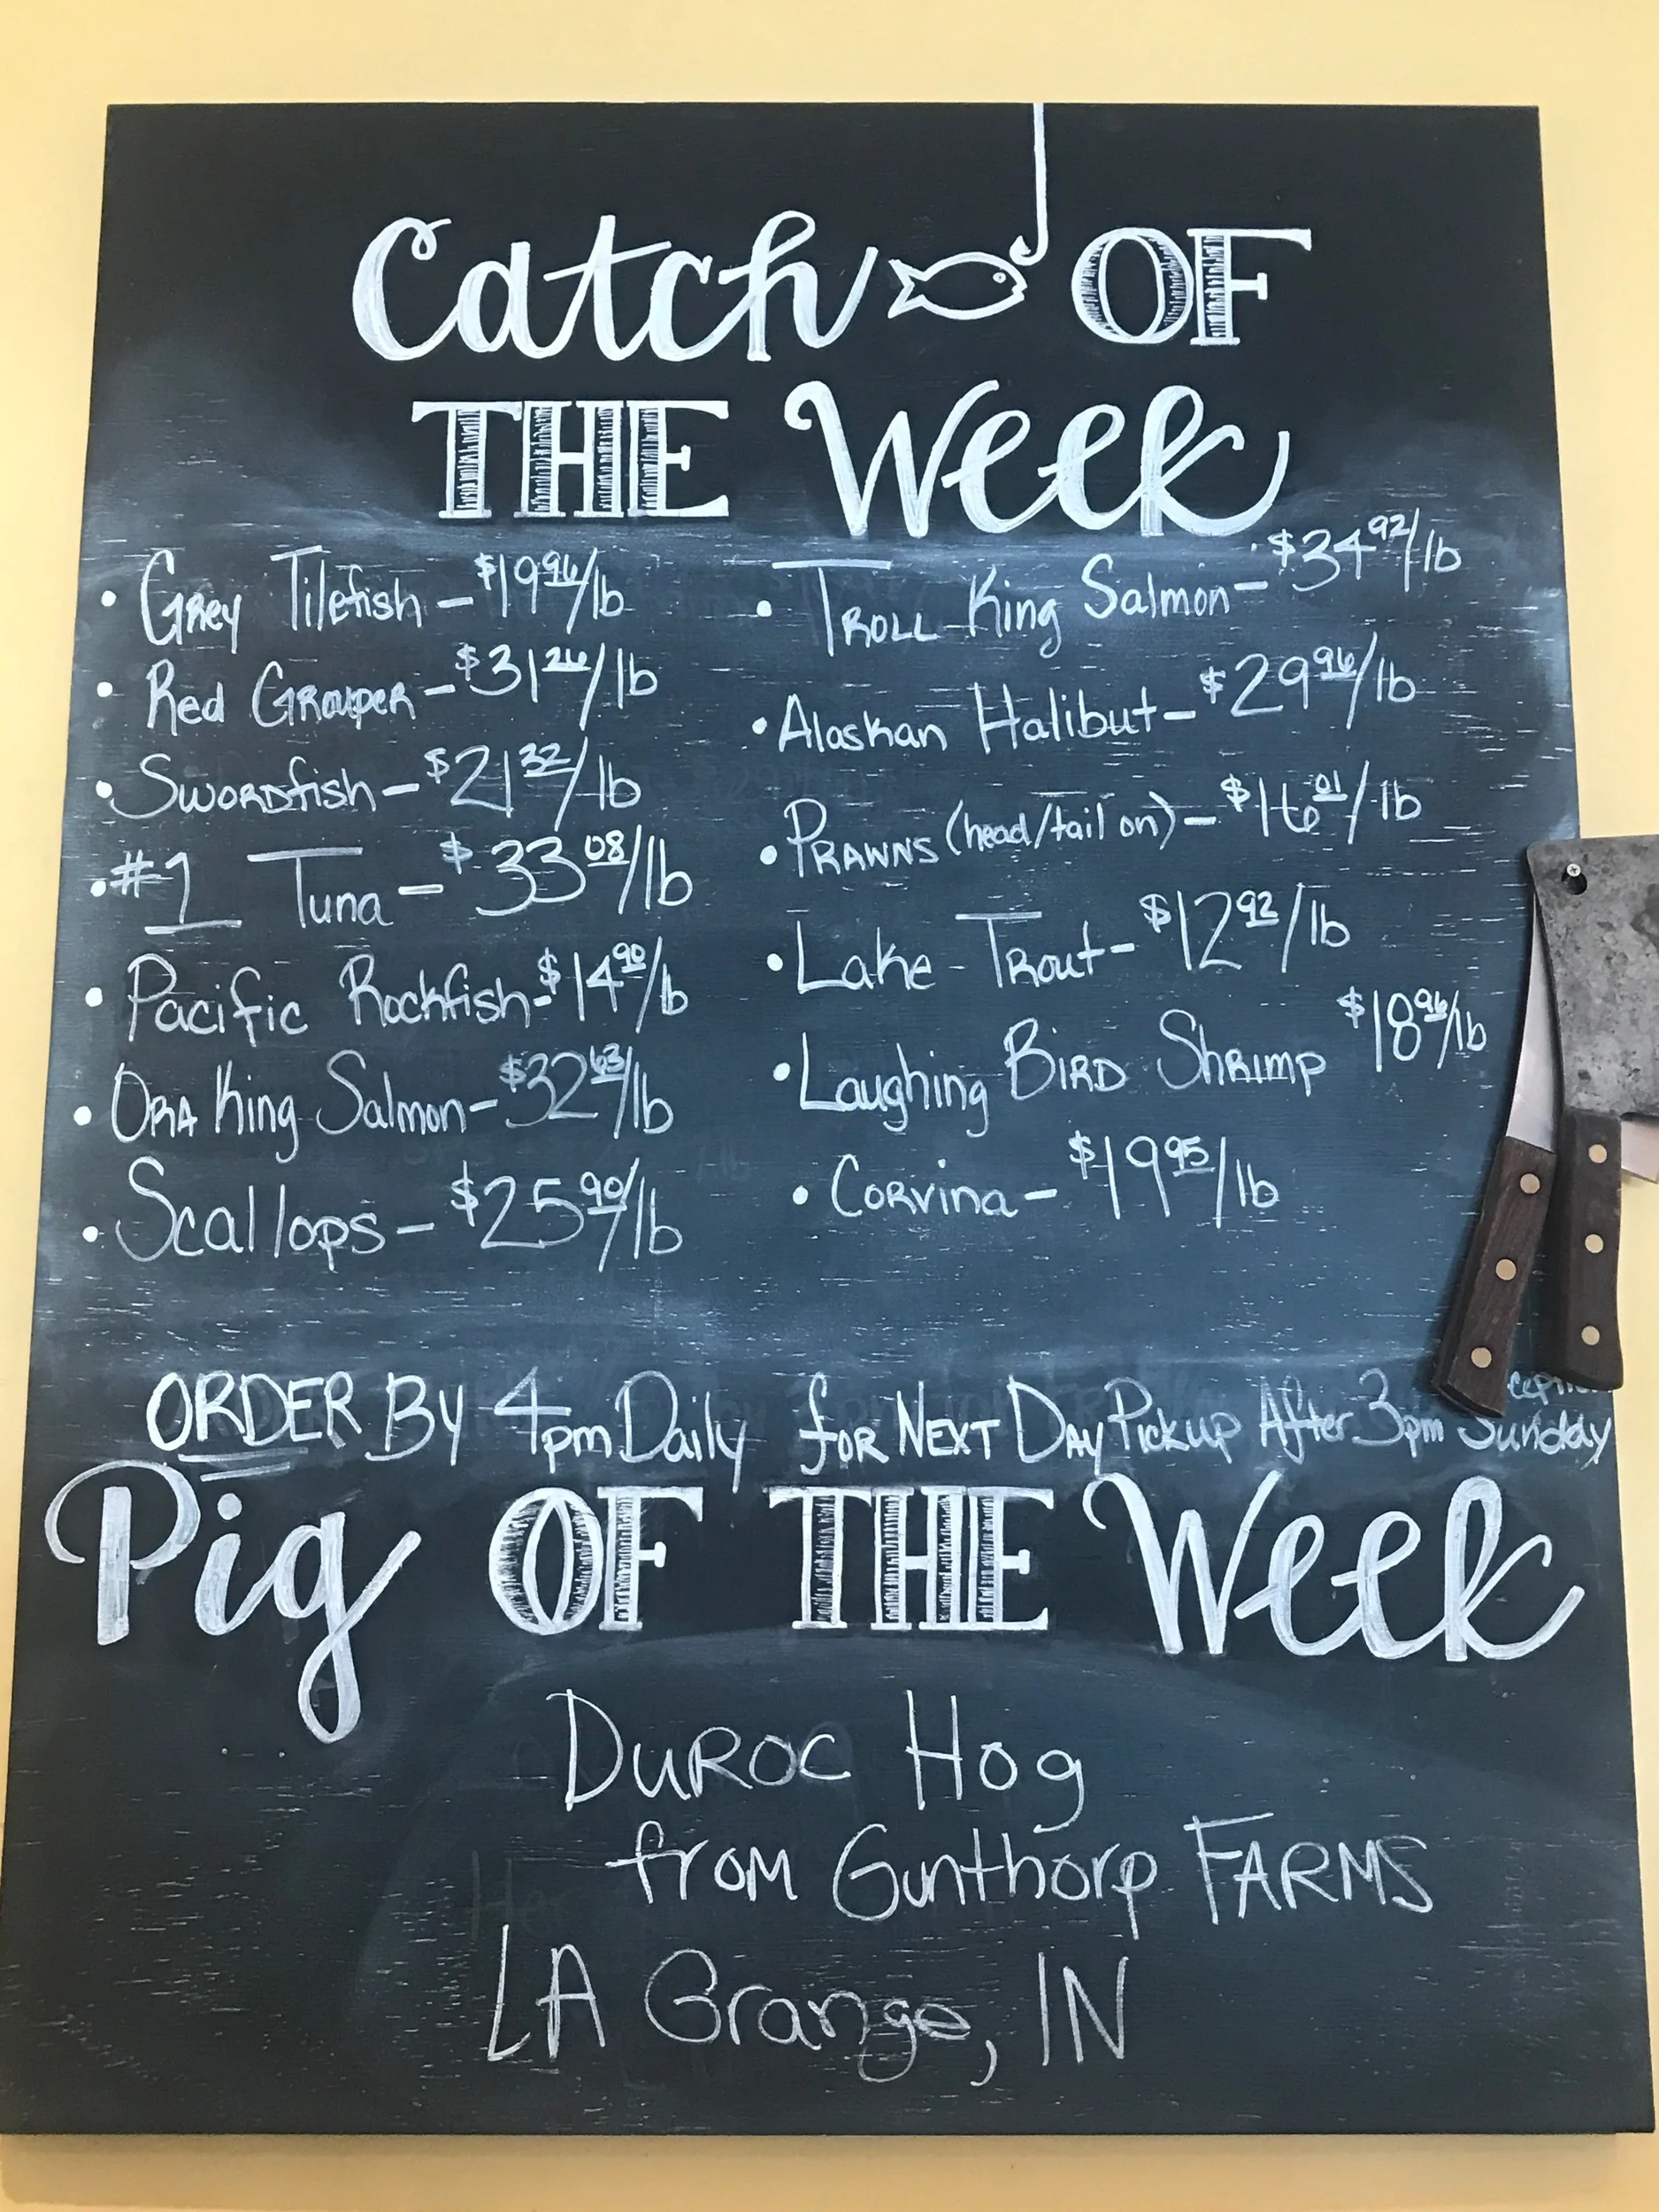 Catch OF
THE Week
• Grey Tilefish - $19 96/lb
• Red Grouper - $31 26/lb
• Swordfish - $21 32/lb
• #1 Tuna - $33 08/lb
• Pacific Rockfish - $14 90/lb
• Ora King Salmon - $32 63/lb
• Scallops - $25 90/lb
• Troll King Salmon - $34 92/lb
• Alaskan Halibut - $29 96/lb
• Prawns (head/tail on) - $16 01/lb
• Lake Trout - $12 92/lb
• Laughing Bird Shrimp $18 96/lb
• Corvina - $19 95/lb
ORDER By 4pm Daily for Next Day Pickup After 3pm Sunday
Pig OF THE Week
Duroc Hog
from Gunthorp FARMS
LA Grange, IN